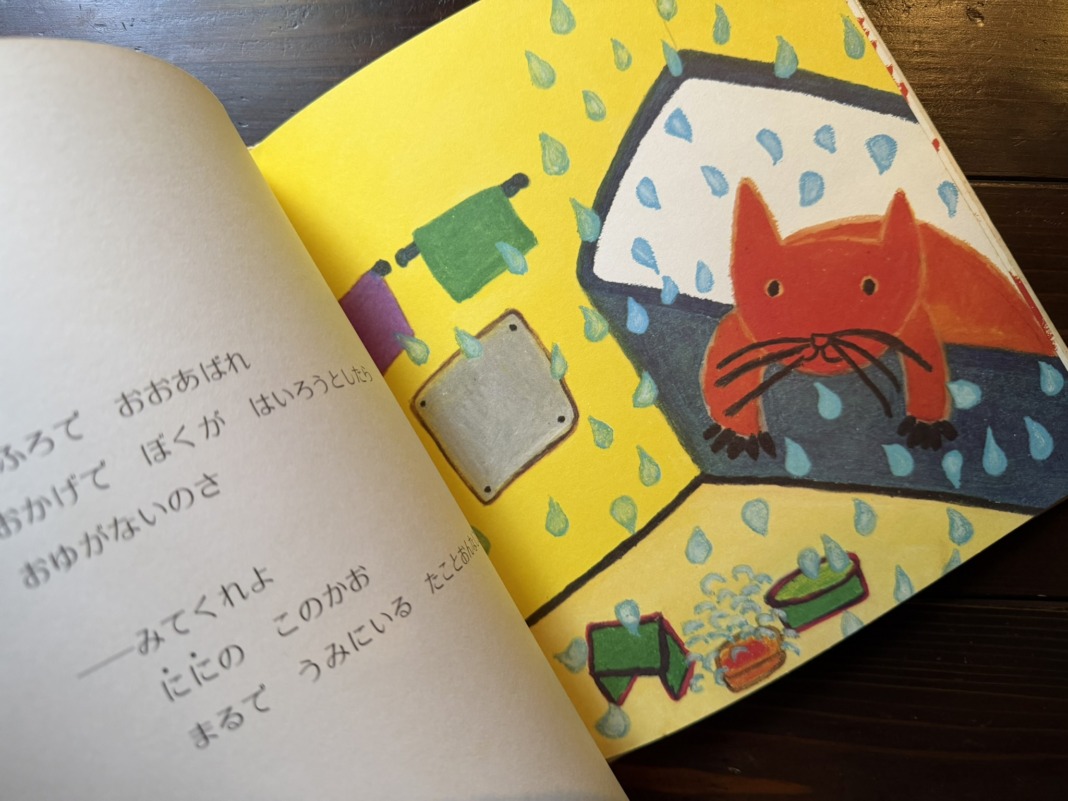 ふろで　おおあばれ
おかげで　ぼくが　はいろうとしたら
おゆがないのさ
――みてくれよ
ににの　このかお
まるで　うみにいる　たことおんな